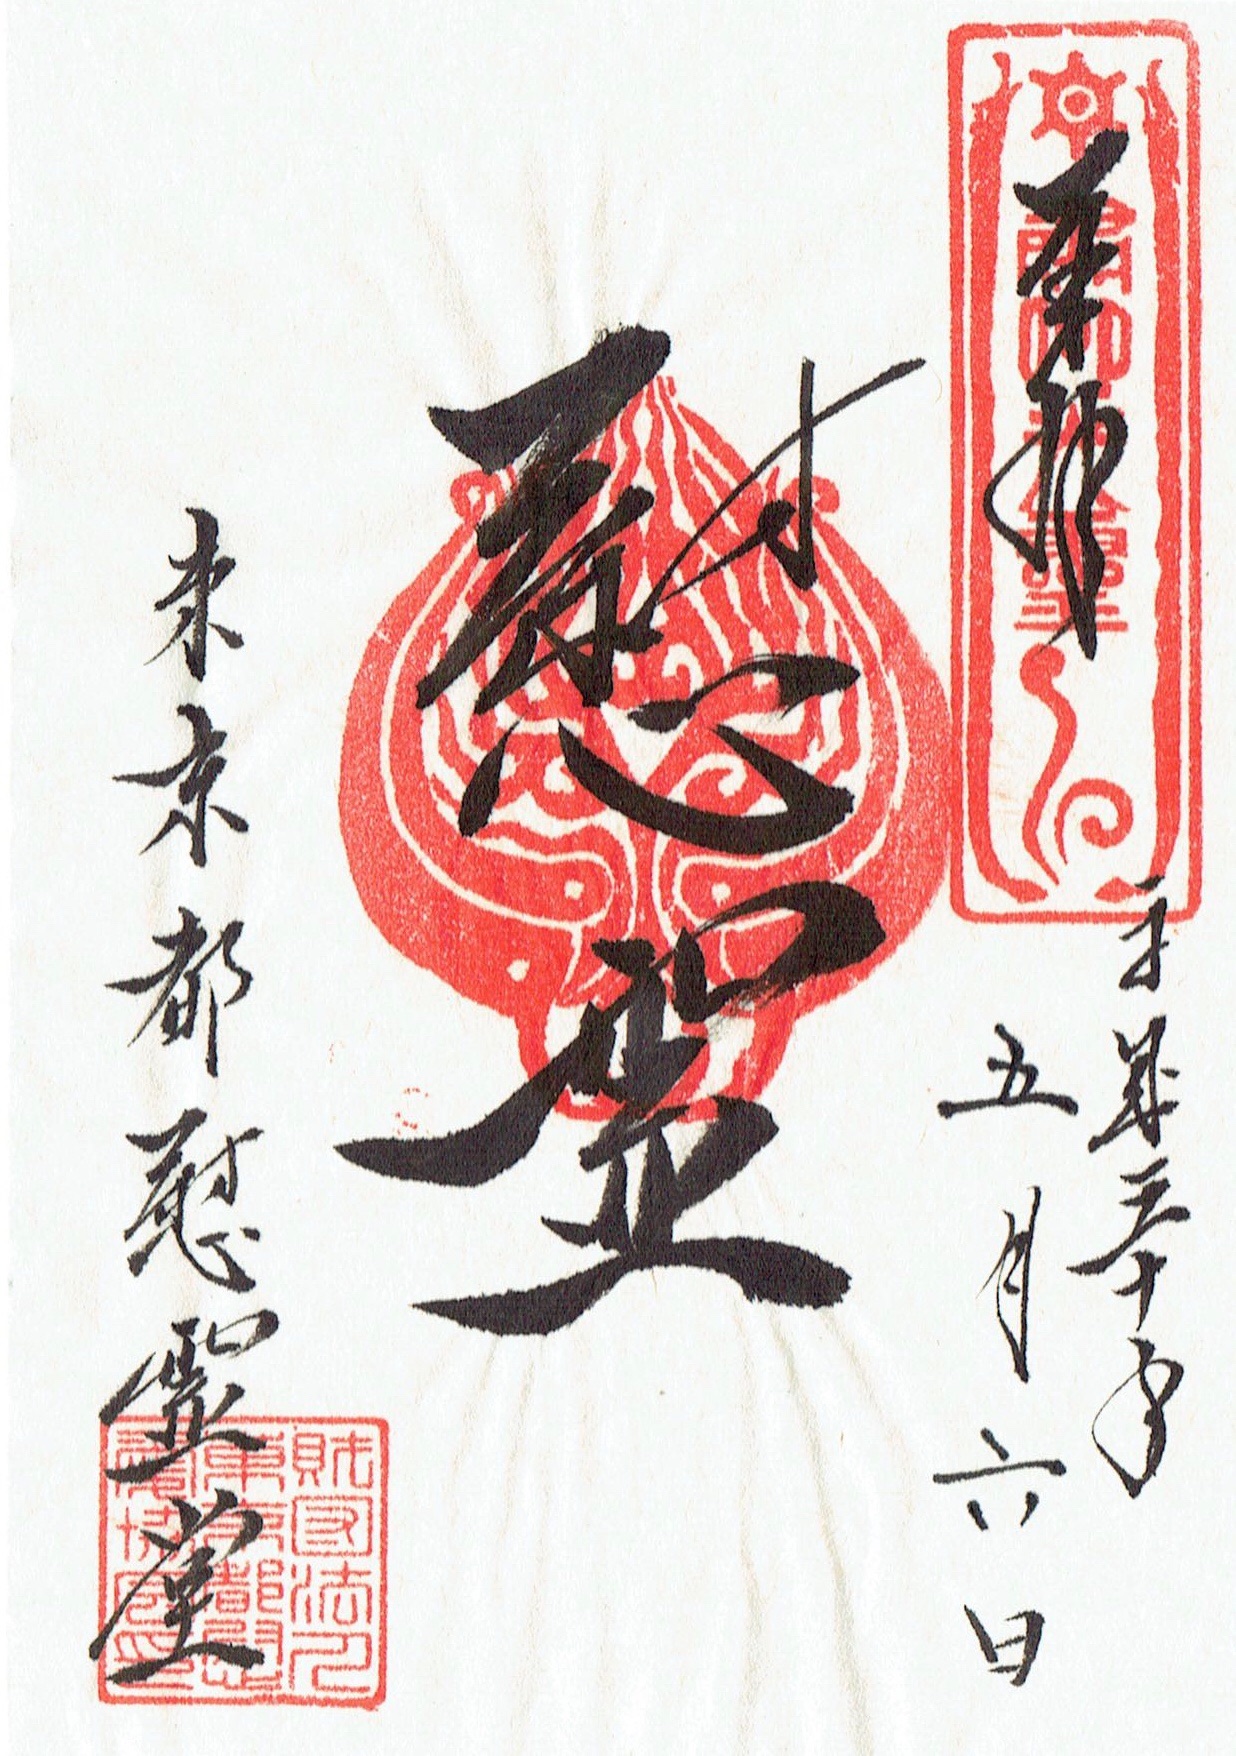 奉拝
平成三十年
五月六日
慰霊
東京都慰霊堂
財団法人
東京都慰
霊協会印